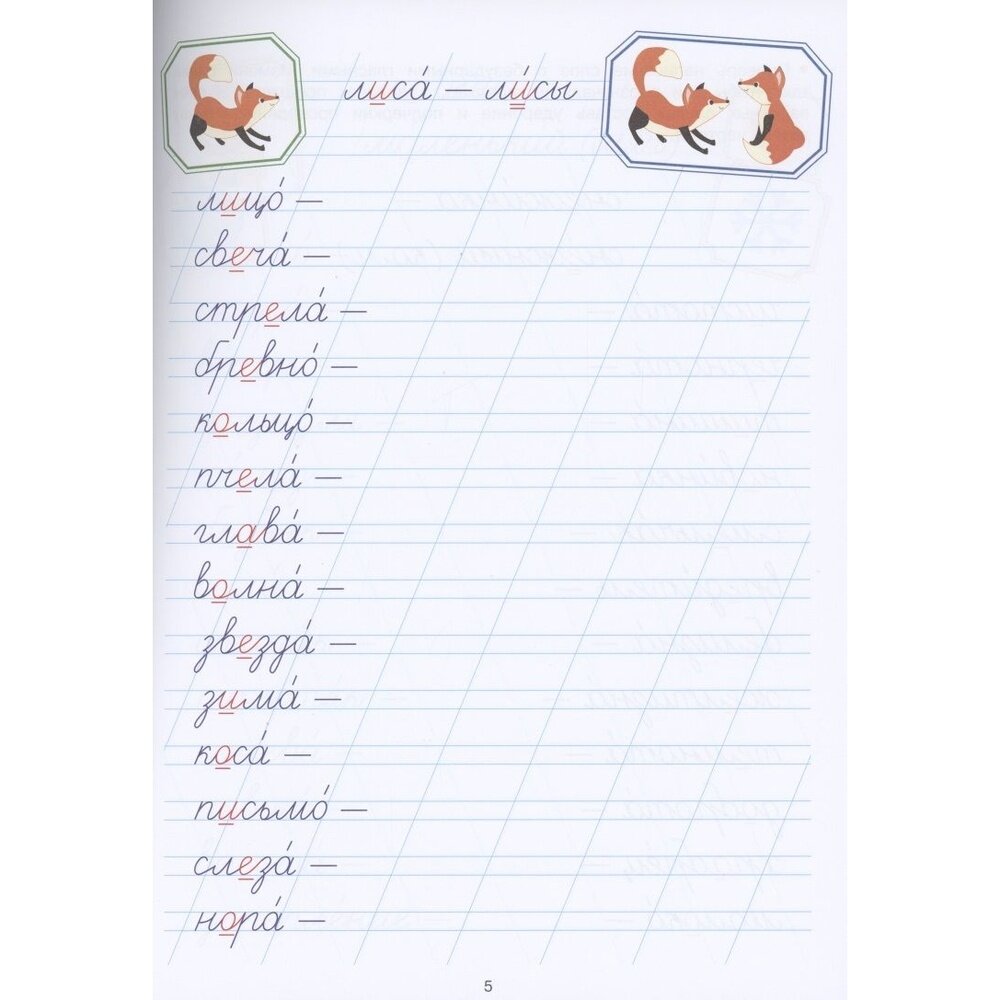 лиса́ — ли́сы
лицо́ —
свеча́ —
стрела́ —
бревно́ —
кольцо́ —
пчела́ —
глава́ —
волна́ —
звезда́ —
зима́ —
коса́ —
письмо́ —
слеза́ —
нора́ —
5